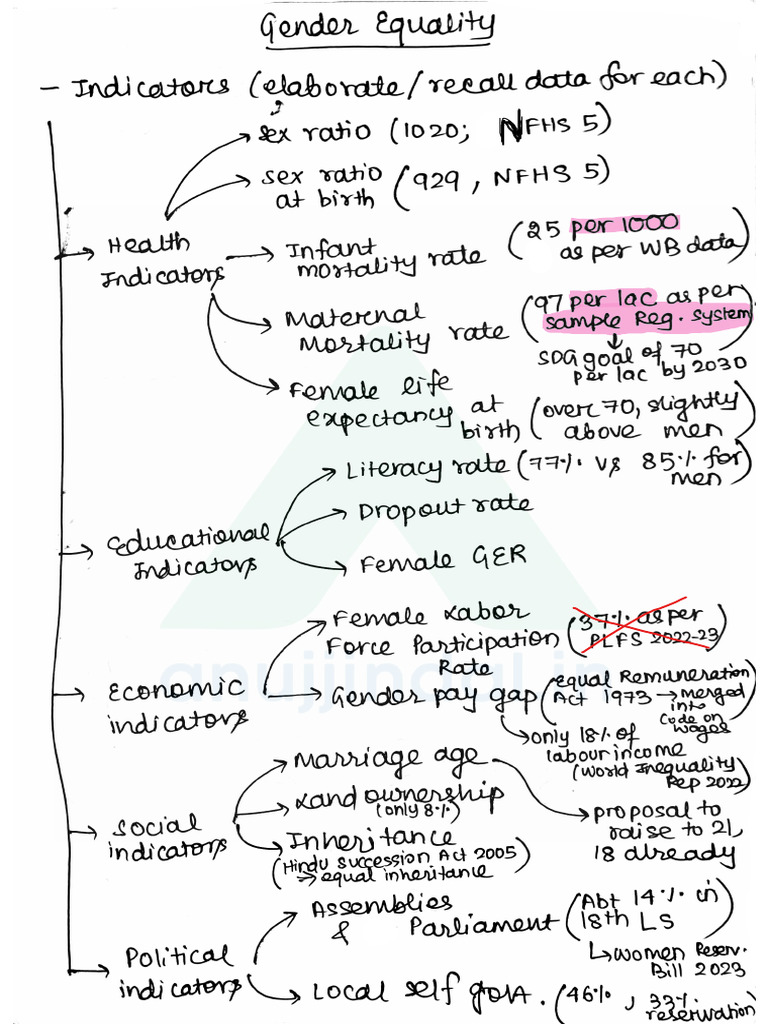 Gender Equality
- Indicators (elaborate/recall data for each)
sex ratio (1020; NFHS 5)
sex ratio
at birth (929, NFHS 5)
Health
Indicators
Infant
mortality rate
(25 per 1000
as per WB data)
Maternal
Mortality rate
(97 per lac as per
sample Reg. system)
SDG goal of 70
per lac by 2030
Female life
expectancy at
birth
(over 70, slightly
above men)
Literacy rate (77% vs 85% for
men)
Dropout rate
Educational
Indicators
Female GER
Female Labor
Force Participation
Rate
(37% as per
PLFS 2022-23)
Economic
indicators
Gender pay gap
(Equal Remuneration
Act 1973 → Merged
into
Code on
Wages)
only 18% of
labour income
(World Inequality
Rep 2022)
Marriage age
proposal to
raise to 21,
18 already
Land ownership
(only 8%)
Social
indicators
Inheritance
(Hindu Succession Act 2005)
→ equal inheritance
Assemblies
& Parliament
(Abt 14% in
18th LS)
women Reserv.
Bill 2023
Political
indicators
Local self govt. (46%, 33%
reservation)
anujjindal.in